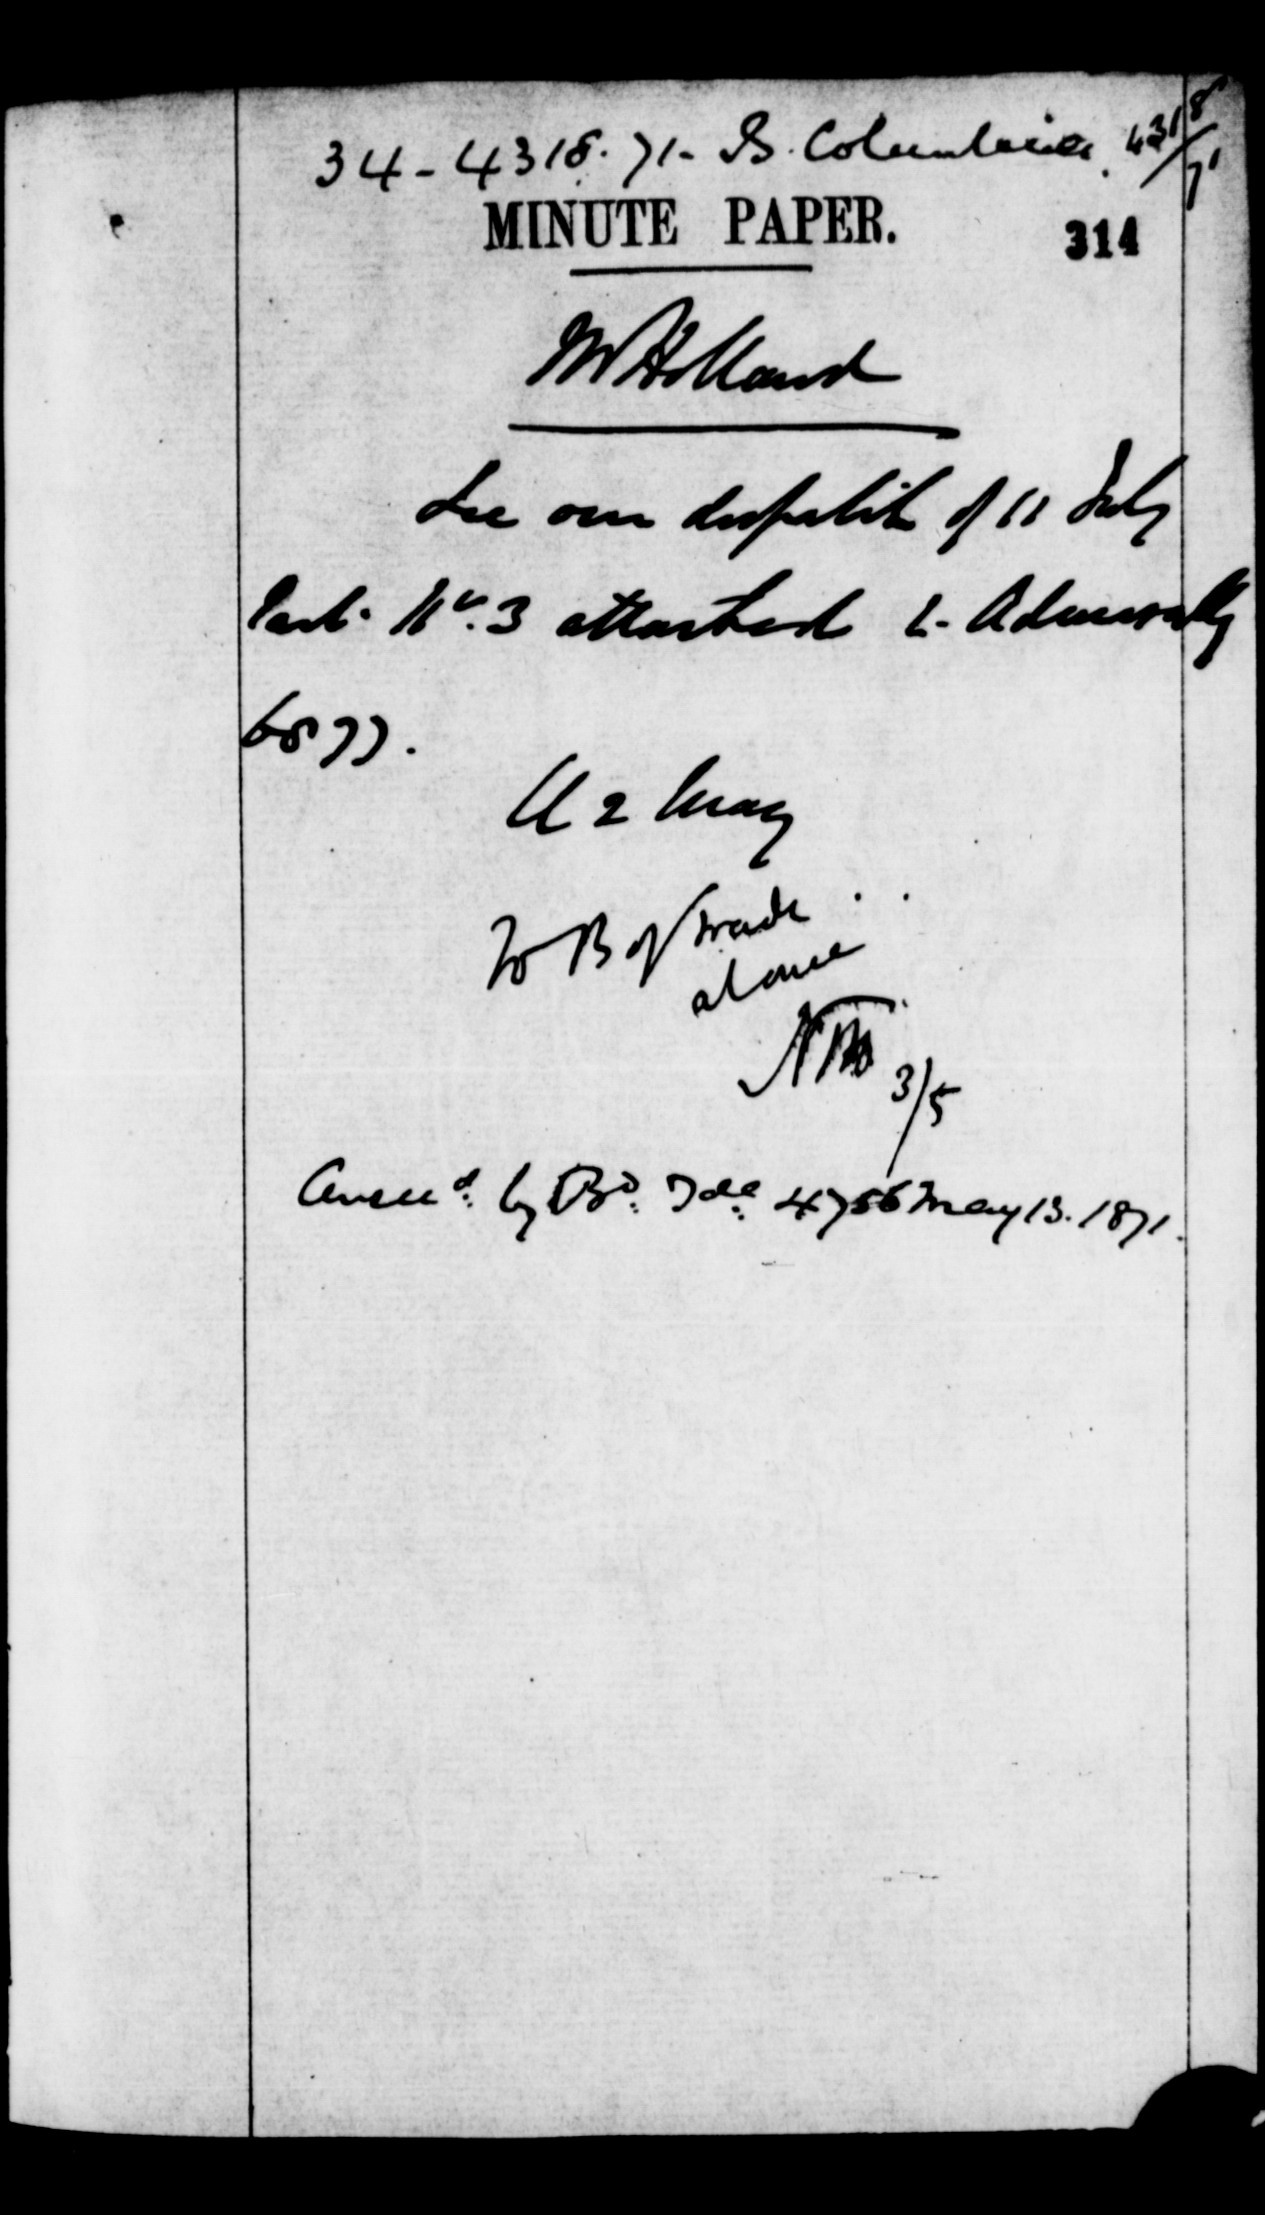 34 - 4318. 71 - B. Columbia. 4318/71
MINUTE PAPER.
314
Mr Holland
See our despatch of 11 July
last. No. 3 attached to Admiralty
6877.
2 May
To B of Trade
at once
3/5
Answd. by Bd. Tde. 4756 May 13. 1871.